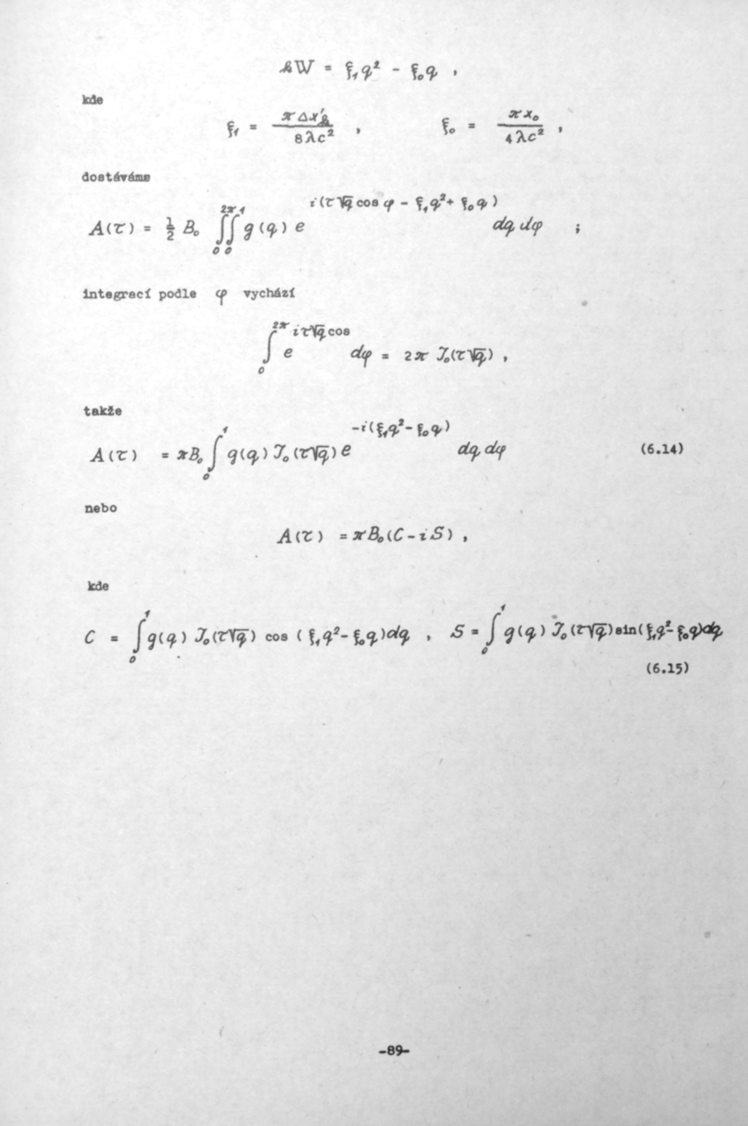 kW = ξ₁q² - ξ₀q ,
kde
ξ₁ = πΔx'ₖ / 8λc² , ξ₀ = πx₀ / 4λc² ,
dostáváme
A(τ) = ½ B₀ ∫₀^2π ∫₀^1 g(q) e^i(τ√q cos φ - ξ₁q² + ξ₀q) dq dφ ;
integrací podle φ vychází
∫₀^2π e^iτ√q cos dφ = 2π J₀(τ√q) ,
takže
A(τ) = πB₀ ∫₀^1 g(q) J₀(τ√q) e^-i(ξ₁q² - ξ₀q) dq dφ (6.14)
nebo
A(τ) = πB₀(C - iS) ,
kde
C = ∫₀^1 g(q) J₀(τ√q) cos (ξ₁q² - ξ₀q)dq , S = ∫₀^1 g(q) J₀(τ√q)sin(ξ₁q² - ξ₀q)dq
(6.15)
-89-